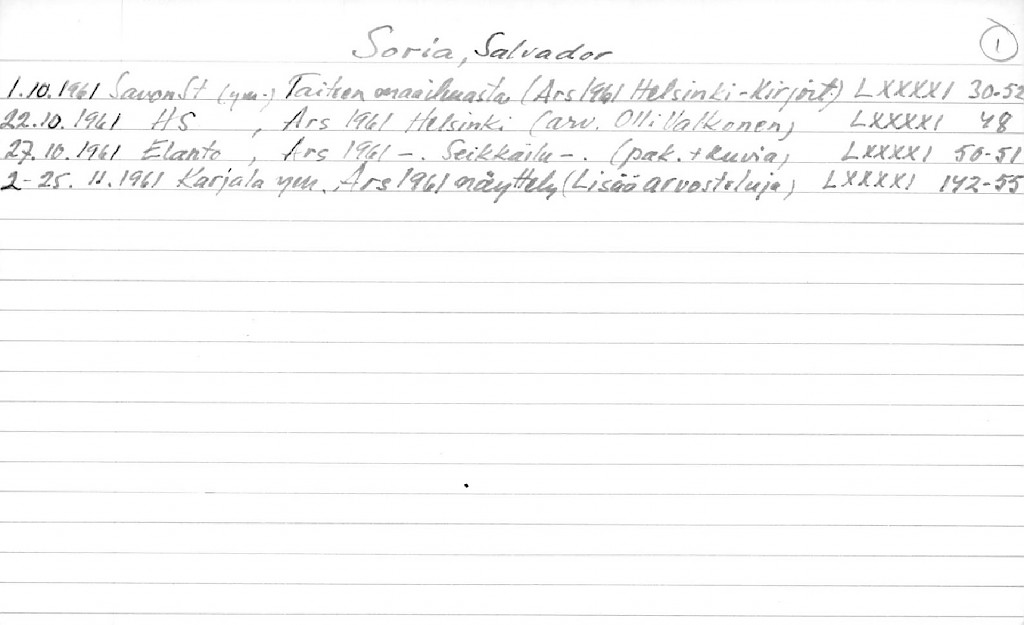 Soria, Salvador
1
1.10.1961 SavonSt (ym.) Taiteen maailmasta (Ars 1961 Helsinki-Kirjoit.) LXXXXI 30-52
22.10.1961 HS , Ars 1961 Helsinki (arv. Olli Valkonen) LXXXXI 48
27.10.1961 Elanto , Ars 1961 -. Seikkailu -. (pak. + kuvia) LXXXXI 50-51
2-25.11.1961 Karjala ym. Ars 1961 näyttely (Lisää arvosteluja) LXXXXI 142-55